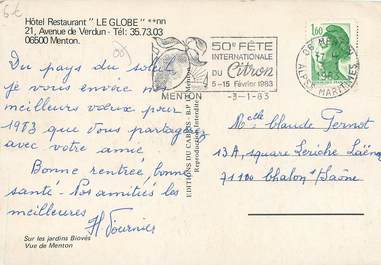 6 €
Hôtel Restaurant "LE GLOBE" **nn
21, Avenue de Verdun - Tél: 35.73.03
06500 Menton.
50e FÊTE
INTERNATIONALE
DU Citron
5-15 Février 1983
MENTON
-3-1-83
06 MENTON
1983
ALPES MARITIMES
1,60
Du pays du soleil
je vous envoie nos
meilleurs voeux pour
1983 que vous partagerez
avec votre amie.
Bonne rentrée, bonne
santé - Nos amitiés les
meilleures
H. Fournier
EDITIONS DU CABRI - B.P. Menton
Reproduction interdite
Melle Claude Pernot
13A, square Leriche Laënnec
71100 Chalon s/Saône
Sur les jardins Biovès
Vue de Menton